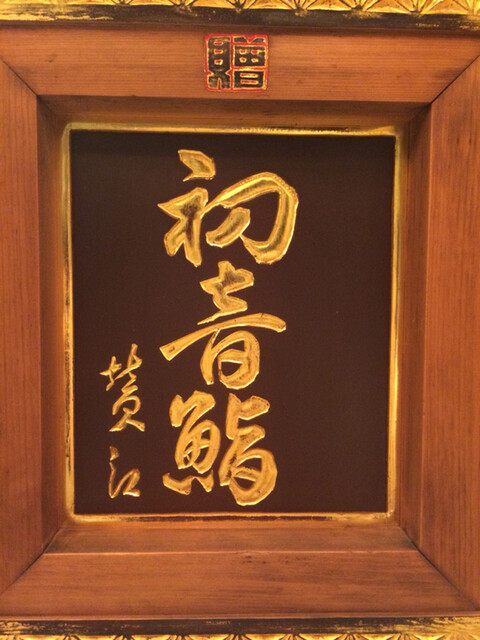 贈
初音鮨
賛江